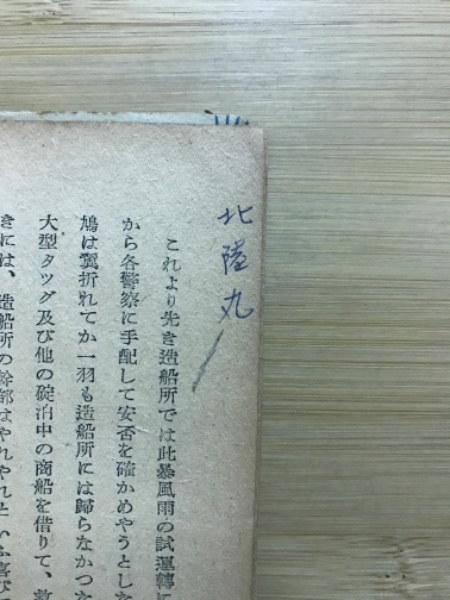 北陸丸
これより先き造船所では此暴風雨の試運轉に
から各警察に手配して安否を確かめやうとした
鳩は翼折れてか一羽も造船所には歸らなかつた
大型タツグ及び他の碇泊中の商船を借りて、救
きには、造船所の幹部はやれやれと